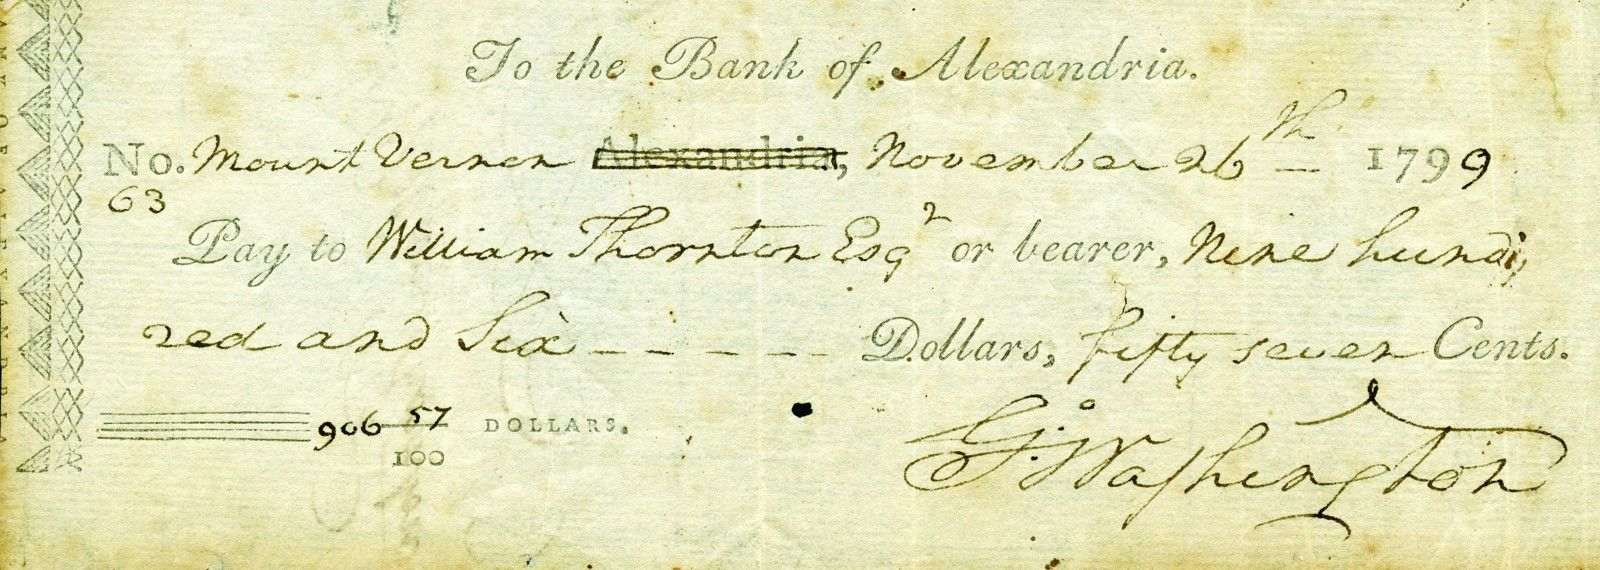 To the Bank of Alexandria.
No. Mount Vernon Alexandria, November 26th 1799
63
Pay to William Thornton Esqr or bearer, Nine hund
red and Six - - - - - Dollars, fifty seven Cents.
906 57/100 DOLLARS.
G:Washington